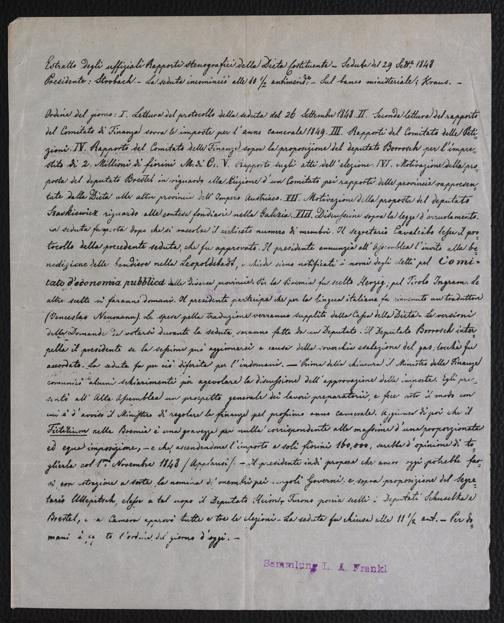 Estratto degli uffiziali Rapporti stenografici della Dieta Costituente. – Seduta del 29 Settbre 1848
Presidente: Strobach. – La seduta incominciò alle 10 1/2 antimerid. – Sul banco ministeriale: Kraus. –
Ordine del giorno: I. Lettura del protocollo della seduta del 26 Settembre 1848. II. Seconda lettura del rapporto
del Comitato di Finanza sovra le imposte per l'anno camerale 1849. III. Rapporti del Comitato delle Peti-
zioni. IV. Rapporto del Comitato delle Finanze sopra la proposizione del deputato Borrosch per l'impre-
stito di 2 Millioni di fiorini M. di C. V. Rapporto sugli atti dell'elezione. VI. Motivazione della pro-
posta del deputato Brestel in riguardo alla elezione d'un Comitato pei rapporti delle provincie rappresen-
tate dalla Dieta alle altre provincie dell'Impero Austriaco. VII. Motivazione della proposta del deputato
riguardo alle contese fondiarie nella Galizia. VIII. Discussione sopra la legge d'arruolamento.
La seduta fu aperta dopo che si raccolse il richiesto numero di membri. Il segretario Cavalcabo lesse il pro-
tocollo della precedente seduta, che fu approvato. Il presidente annunziò all'Assemblea l'invito alla be-
nedizione delle bandiere nella Leopoldstadt, e chiede sieno notificati i nomi degli eletti pel Comi-
tato d'economia pubblica dalle diverse provincie. Per la Boemia fu scelto Herzig; pel Tirolo Ingram. Le
altre scelte si faranno domani. Il presidente partecipò che per la lingua italiana fu rinvenuto un traduttore
(Venceslao Neumann). Le spese della traduzione verranno supplite dalla Cassa della Dieta. Le versioni
delle domande da votarsi durante la seduta, saranno fatte da un Deputato. Il Deputato Borrosch inter-
pella il presidente se la sessione può aggiornarsi a causa della soverchia esalazione del gas, locchè fu
accordato. La seduta fu per ciò differita per l'indomani. – Prima della chiusura il Ministro delle Finanze
comunicò alcuni schiarimenti per agevolare la discussione dell'approvazione delle imposte. Egli pre-
sentò all'Alta Assemblea un prospetto generale dei lavori preparatorii, e fece noto il modo con
cui è d'avviso il Ministero di regolare le finanze pel prossimo anno camerale. Aggiunse di poi che il
nella Boemia è una gravezza per nulla corrispondente alle massime d'una proporzionata
ed equa imposizione, – e che, ascendendone l'importo a soli fiorini 160,000, sarebbe d'opinione di to-
glierla col 1mo Novembre 1848 /Applausi/. – Il presidente indi propose che ancor oggi potrebbe far-
si con votazione a sorte la nomina di membri pei singoli Governi, e sopra proposizione del Segre-
tario Ullepitsch, elesse a tal uopo il Deputato Keim. Furono poscia scelti i Deputati Schuselka e
Brestel, e la Camera approvò tutte e tre le elezioni. – La seduta fu chiusa alle 11 1/2 ant. – Per do-
mani l'ordine del giorno d'oggi. –
Sammlung L. A. Frankl